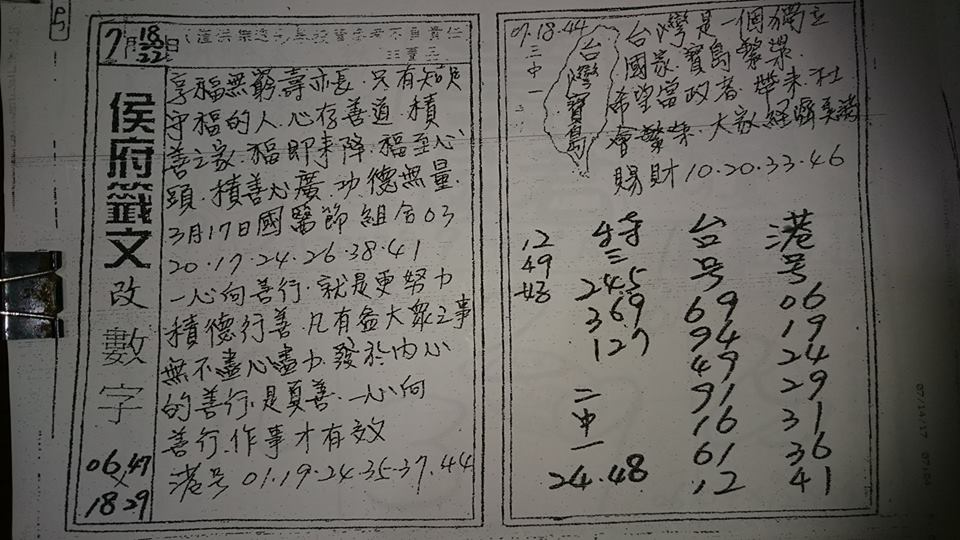 7月
18
20
22
日
侯府籤文
改數字
06.47
18 29
享福無窮壽亦長.只有知足
守福的人.心存善道.積
善之家.福即來降.福至心
頭.積善心廣.功德無量.
3月17日國醫節組合03
20.17.24.26.38.41
一心向善行.就是更努力
積德行善.凡有益大眾之事
無不盡心盡力.發於內心
的善行.是真善.一心向
善行.作事才有效
港号 01.19.24.35.37.44
07.18.44
三中一
台灣寶島
台灣是一個獨立
國家.寶島繁榮.
希望當政者.帶來社
會繁榮.大家經濟美滿
賜財10.20.33.46
12
49
特三
245
369
127
二中一
24.48
台号
69
94
49
91
16
61
12
港号
06
19
24
29
31
36
41
07/14/17